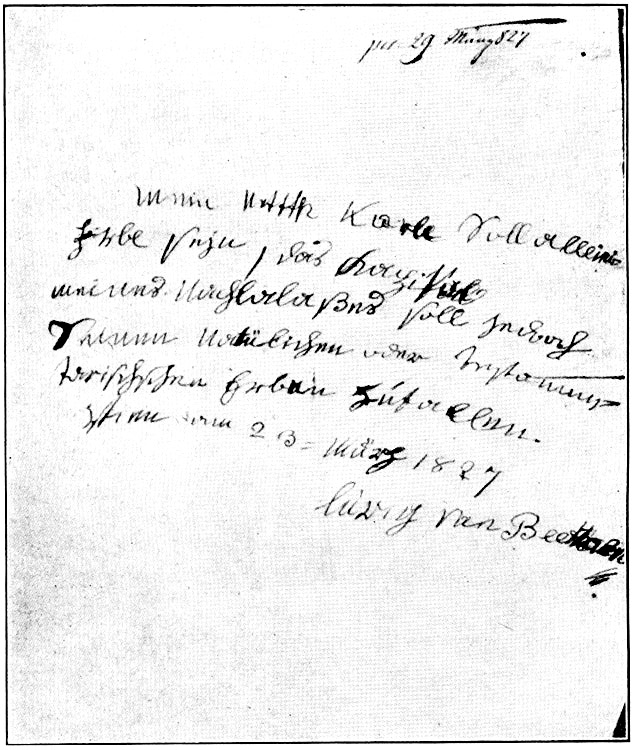 29 März 827
Mein Neffe Karl Soll alleini
Erbe seyn, das Kapital
meines Nachlalaßes soll jedoch
Seinen Natülichen oder testamen-
tarischschen Erben zufallen.
Wien am 23= März 1827
luwig van Beethoven